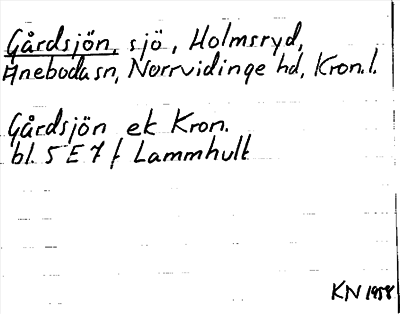 Gårdsjön, sjö, Holmsryd,
Aneboda sn, Norrvidinge hd, Kron. l.
Gårdsjön ek Kron.
bl. 5 E 7 f Lammhult
KN 1958